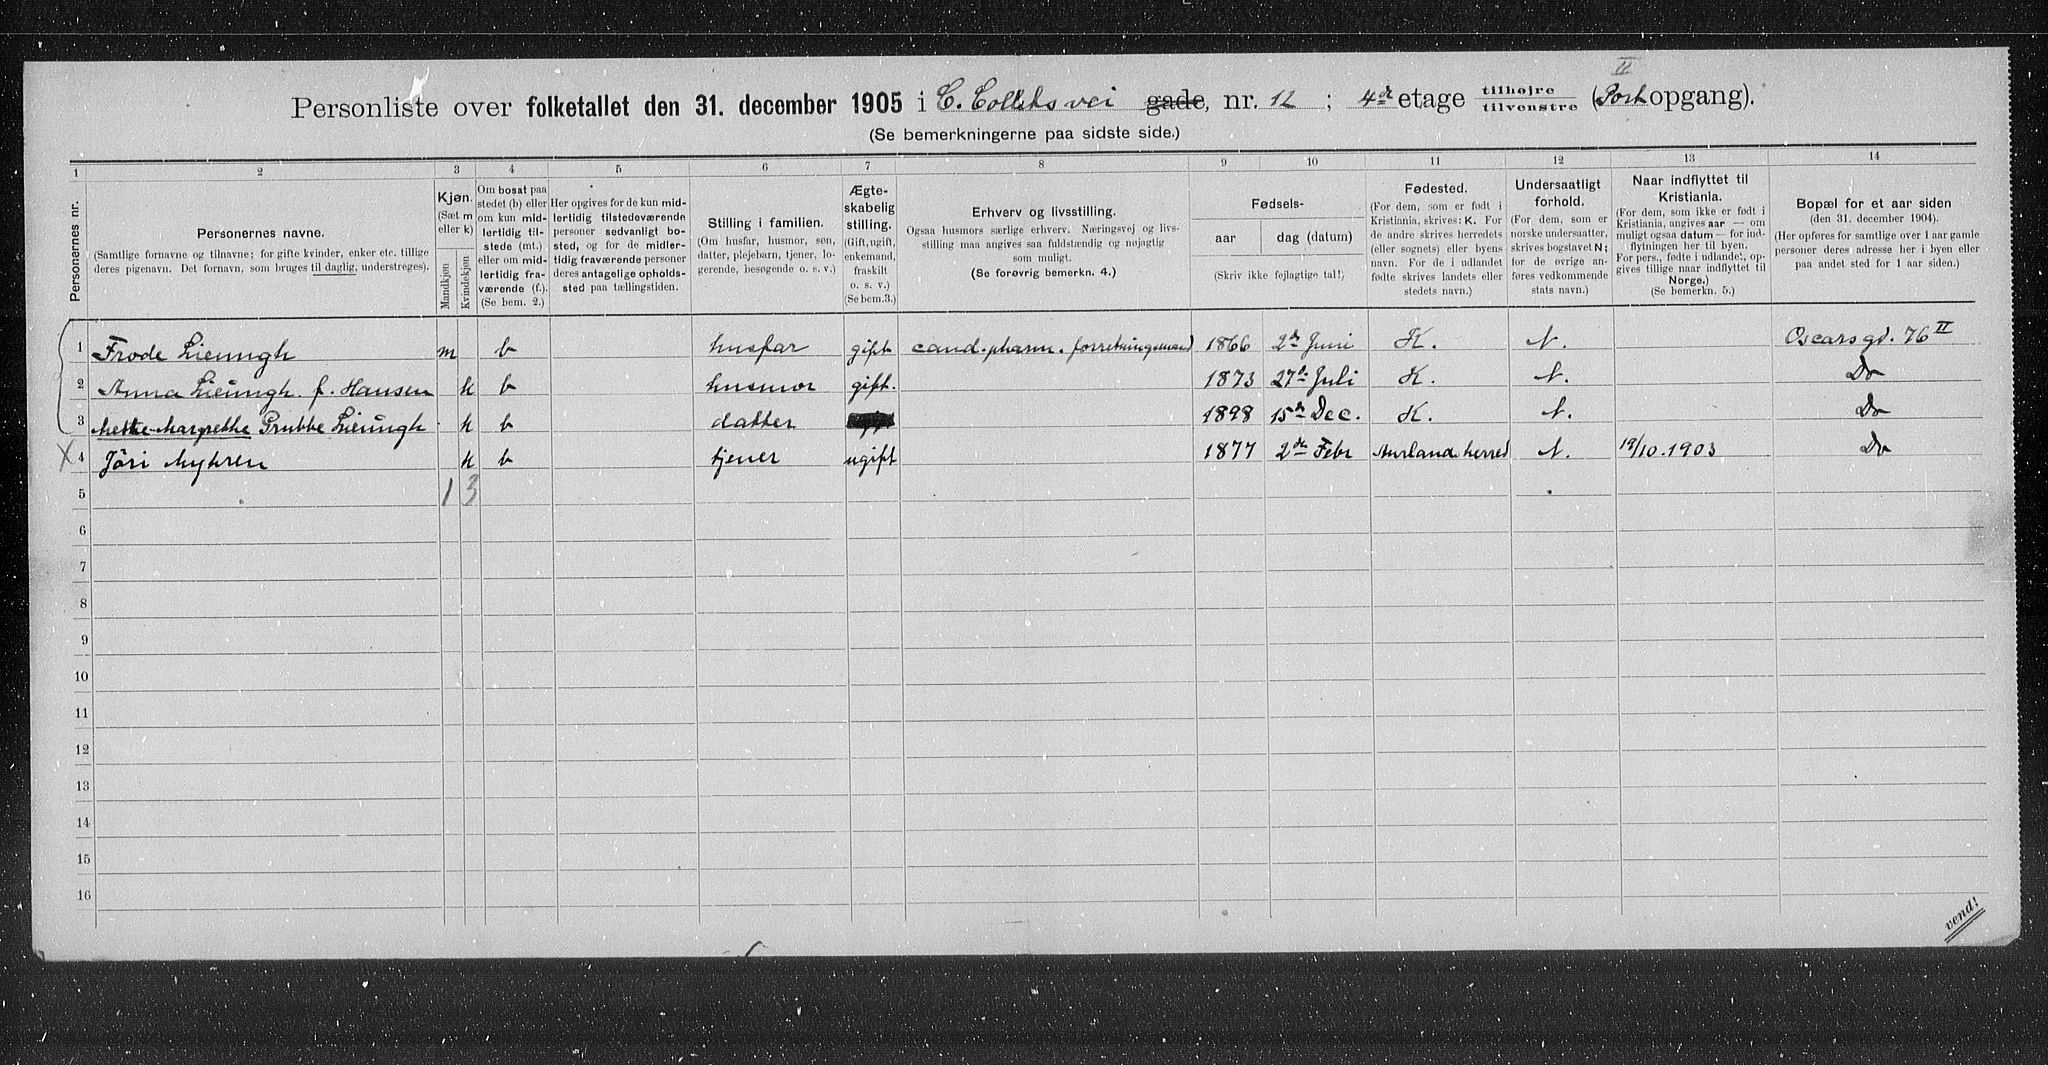 II
Personliste over folketallet den 31. december 1905 i C. Colletts vei gade, nr. 12 ; 4de etage tilhøjre tilvenstre (Portopgang).
(Se bemerkningerne paa sidste side.)
1 2 3 4 5 6 7 8 9 10 11 12 13 14
Personernes nr.
Personernes navne.
(Samtlige fornavne og tilnavne; for gifte kvinder, enker etc. tillige
deres pigenavn. Det fornavn, som bruges til daglig, understreges).
Kjøn.
(Sæt m
eller k)
Mandkjøn
Kvindekjøn
Om bosat paa
stedet (b) eller
om kun mid-
lertidig til-
stede (mt.)
eller om mid-
lertidig fra-
værende (f.).
(Se bem. 2.)
Her opgives for de kun mid-
lertidig tilstedeværende
personer sedvanligt bo-
sted, og for de midler-
tidig fraværende personer
deres antagelige opholds-
sted paa tællingstiden.
Stilling i familien.
(Om husfar, husmor, søn,
datter, plejebarn, tjener, lo-
gerende, besøgende o. s. v.)
Ægte-
skabelig
stilling.
(Gift, ugift,
enkemand,
fraskilt
o. s. v.)
(Se bem.3.)
Erhverv og livsstilling.
Ogsaa husmors særlige erhverv. Næringsvej og livs-
stilling maa angives saa fuldstændig og nøjagtig
som muligt.
(Se forøvrig bemerkn. 4.)
Fødsels-
aar
dag (datum)
(Skriv ikke fejlagtige tal!)
Fødested.
(For dem, som er født i
Kristiania, skrives: K. For
de andre skrives herredets
(eller sognets) eller byens
navn. For de i udlandet
fødte skrives landets eller
stedets navn.)
Undersaatligt
forhold.
(For dem, som er
norske undersaatter,
skrives bogstavet N;
for de øvrige an-
føres vedkommende
stats navn.)
Naar indflyttet til
Kristiania.
(For dem, som ikke er født i
Kristiania, angives aar — om
muligt ogsaa datum — for ind-
flytningen her til byen.
For pers., fødte i udlandet, op-
gives tillige naar indflyttet til
Norge.)
(Se bemerkn. 5.)
Bopæl for et aar siden
(den 31. december 1904).
(Her opføres for samtlige over 1 aar gamle
personer deres adresse her i byen eller
paa andet sted for 1 aar siden.)
1 Frode Lieungh m b husfar gift cand. pharm. forretningsmand 1866 2de Juni K. N. Oscarsgd. 76 II
2 Anna Lieungh f. Hansen k b husmor gift. 1873 27de Juli K. N. Do
3 Mette Margrethe Grubbe Lieungh k b datter 1898 15de Dec. K. N. Do
X 4 Jöri Myhren k b tjener ugift 1877 2de Febr Aurland herred N. 19/10. 1903 Do
5 1 3
6
7
8
9
10
11
12
13
14
15
16
vend!